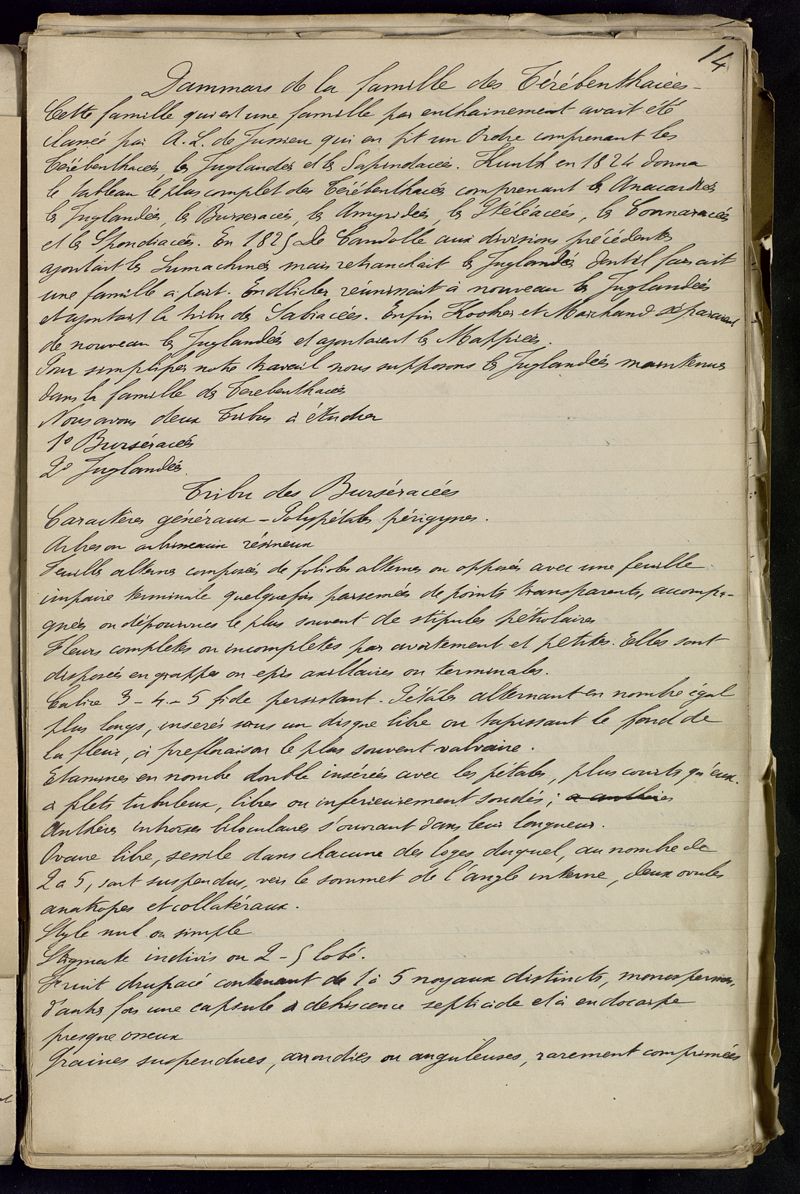 14
Dammars de la famille des Térébenthacées –
Cette famille qui est une famille par enchainement avait été
classée par A. L. de Jussieu qui en fit un Ordre comprenant les
Térébenthacées, les Juglandés et les Sapindacées. Kunth en 1824 donna
le tableau le plus complet des Térébenthacées comprenant les Anacardiées
les Juglandés, les Burseracées, les Amyridées, les Ptéléacées, les Connaracées
et les Spondiacées. En 1825 De Candolle aux divisions précédentes
ajoutait les Sumachinées mais retranchait les Juglandés dont il faisait
une famille à part. Endlicher réunissait à nouveau les Juglandés
et ajoutait la tribu des Sabiacées. Enfin Hooker et Marchand séparaient
de nouveau les Juglandés et ajoutaient les Mappiées.
Pour simplifier notre travail nous supposons les Juglandés maintenus
dans la famille des Terebenthacées
Nous avons deux Tribus à étudier
1º Burséracées
2º Juglandés.
Tribu des Burséracées
Caractères généraux – Polypétales périgynes.
Arbres ou arbrisseaux résineux
Feuilles alternes composées de folioles alternes ou opposées avec une feuille
impaire terminale quelquefois parsemées de points transparents, accompa-
gnées ou dépourvues le plus souvent de stipules pétiolaires
Fleurs completes ou incompletes par avortement et petites. Elles sont
disposées en grappes ou epis axillaires ou terminales.
Calice 3 – 4 – 5 fide persistant. Pétales alternant en nombre égal
plus longs, inserés sous un disque libre ou tapissant le fond de
la fleur, à prefloraison le plus souvent valvaire.
Etamines en nombre double insérées avec les pétales, plus courts qu'eux.
à filets tubuleux, libres ou inferieurement soudés; a anthères
Anthères introrses biloculaires s'ouvrant dans leur longueur.
Ovaire libre, sessile dans chacune des loges duquel, au nombre de
2 à 5, sont suspendus, vers le sommet de l'angle interne, deux ovules
anatropes et collatéraux.
Style nul ou simple
Stigmate indivis ou 2 – 5 lobé.
Fruit drupacé contenant de 1 à 5 noyaux distincts, monospermes,
d'autres fois une capsule à dehiscence septicide et à endocarpe
presque osseux
Graines suspendues, arrondies ou anguleuses, rarement comprimées